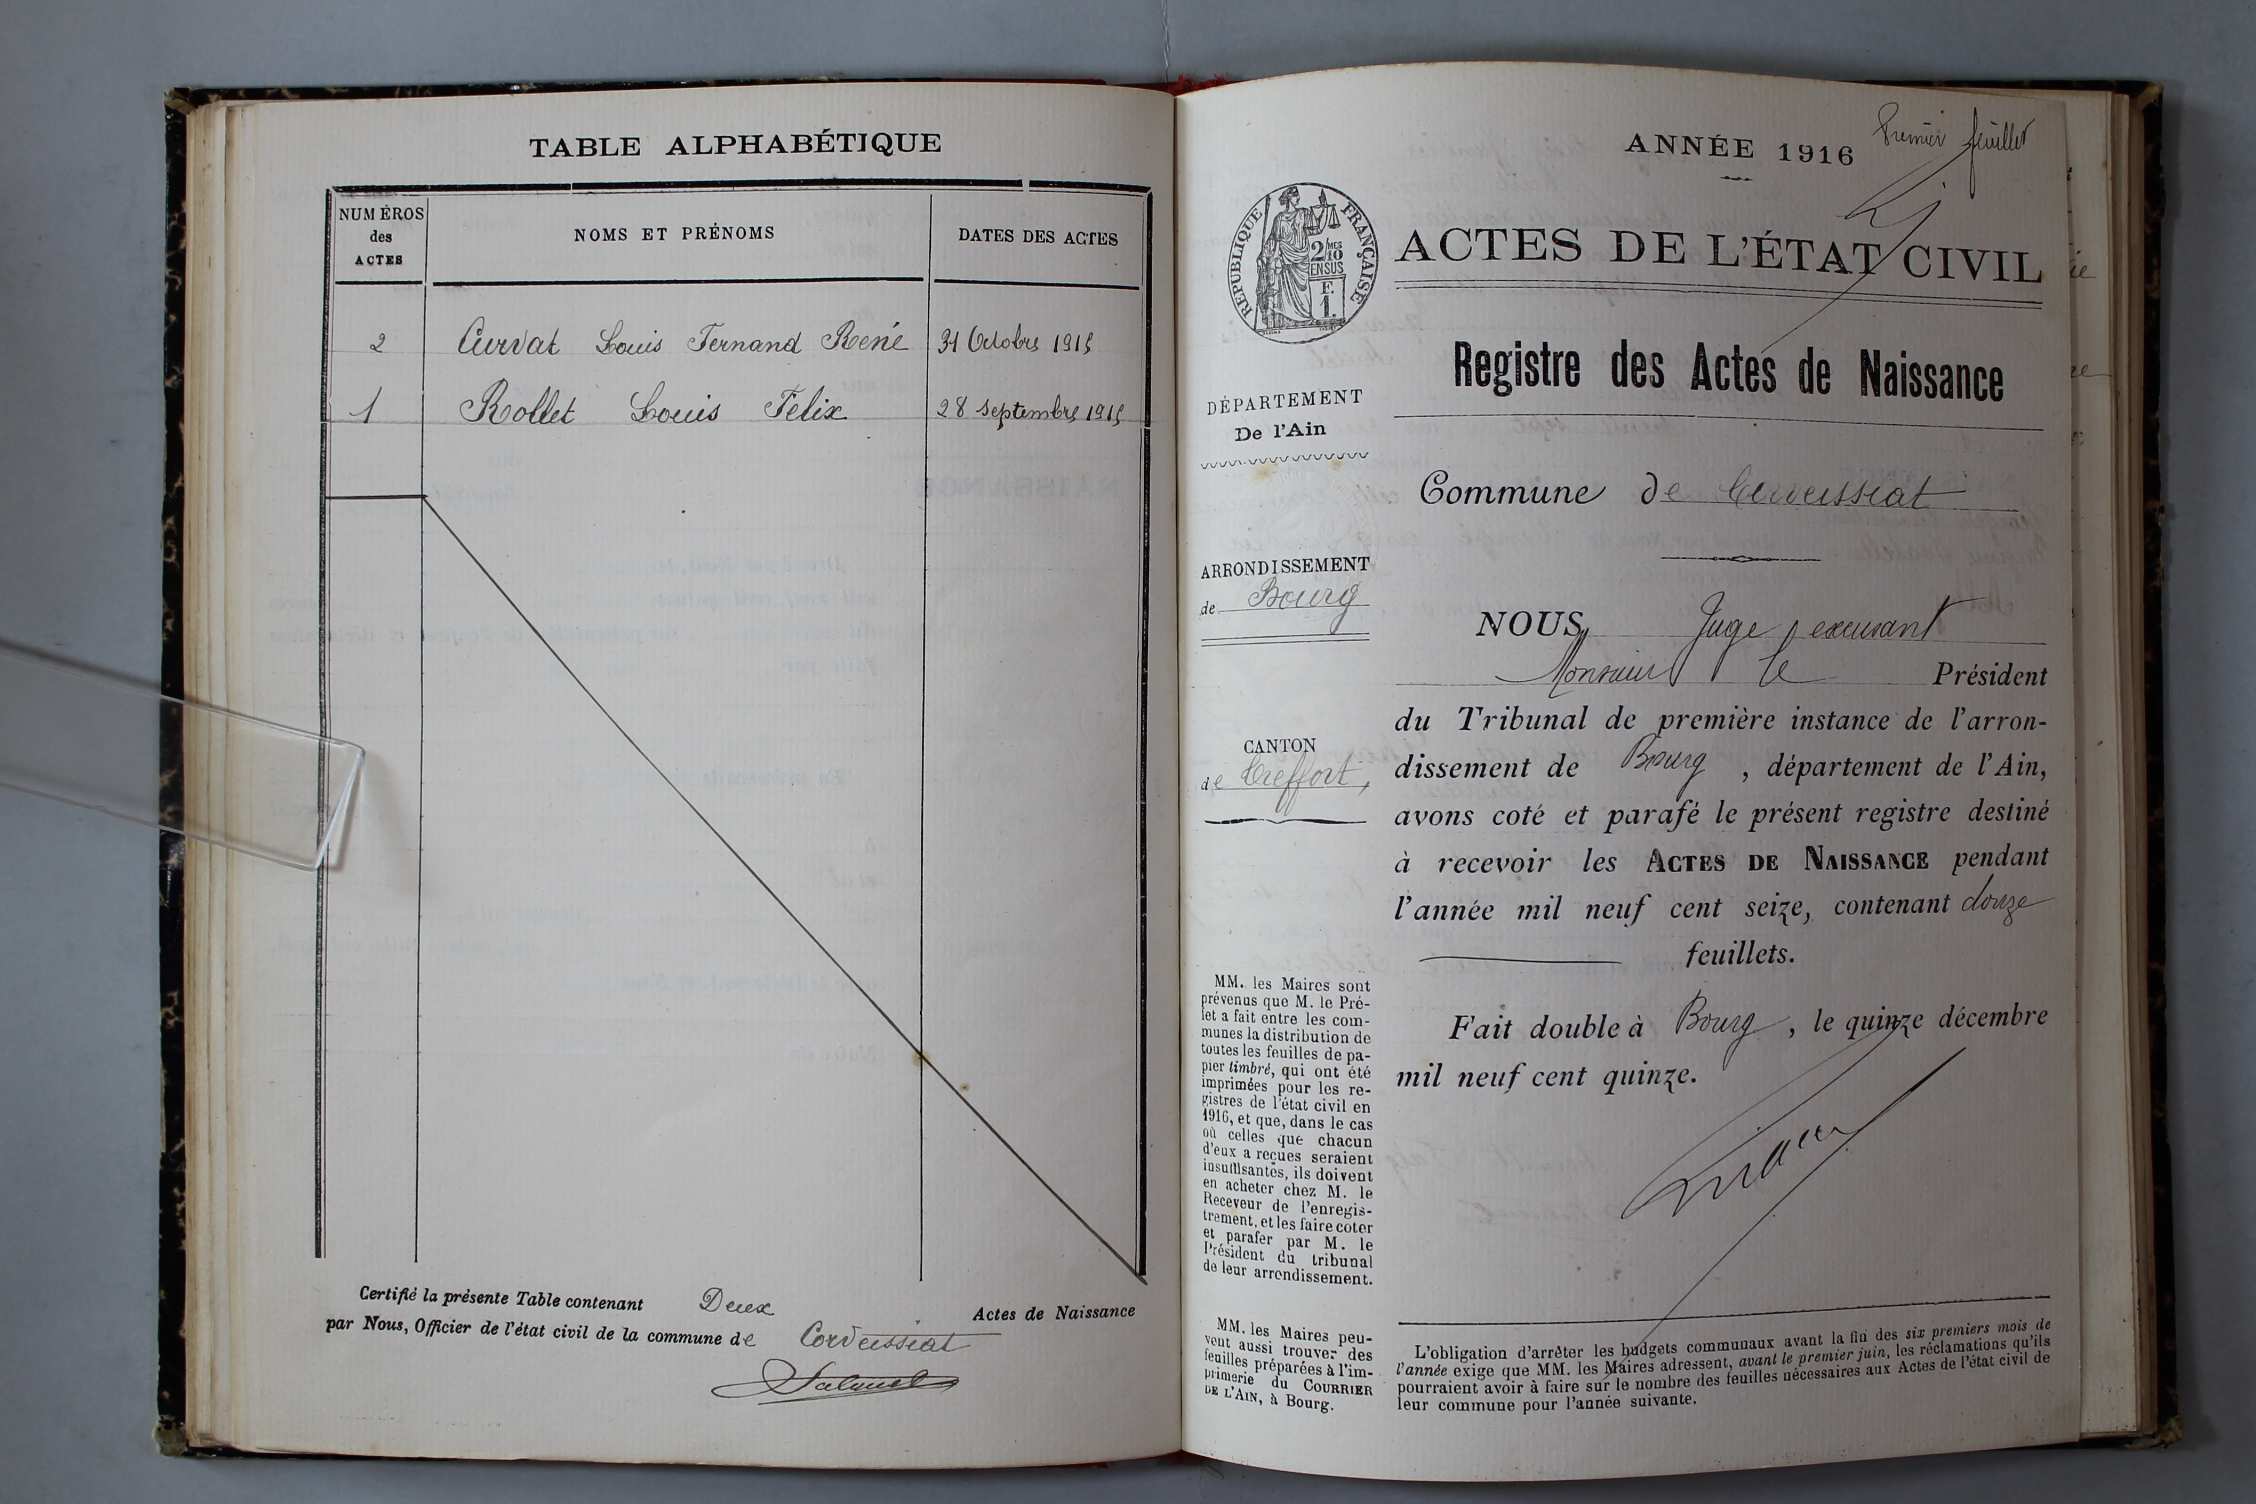 TABLE ALPHABÉTIQUE
NUMÉROS
des
ACTES
NOMS ET PRÉNOMS
DATES DES ACTES
2 Curvat Louis Fernand René 31 Octobre 1915
1 Rollet Louis Félix 28 septembre 1915
Certifié la présente Table contenant Deux Actes de Naissance
par Nous, Officier de l'état civil de la commune de Corveissiat
ANNÉE 1916
Premier feuillet
RÉPUBLIQUE FRANÇAISE
2/MES
10
EN SUS
F.
1.
DÉPARTEMENT
De l'Ain
ARRONDISSEMENT
de Bourg
CANTON
de Treffort,
MM. les Maires sont
prévenus que M. le Pré-
fet a fait entre les com-
munes la distribution de
toutes les feuilles de pa-
pier timbré, qui ont été
imprimées pour les re-
gistres de l'état civil en
1916, et que, dans le cas
où celles que chacun
d'eux a reçues seraient
insuffisantes, ils doivent
en acheter chez M. le
Receveur de l'enregis-
trement, et les faire coter
et parafer par M. le
Président du tribunal
de leur arrondissement.
MM. les Maires peu-
vent aussi trouver des
feuilles préparées à l'im-
primerie du COURRIER
DE L'AIN, à Bourg.
ACTES DE L'ÉTAT CIVIL
Registre des Actes de Naissance
Commune de Corveissiat
NOUS Juge excusant
Monsieur le Président
du Tribunal de première instance de l'arron-
dissement de Bourg, département de l'Ain,
avons coté et parafé le présent registre destiné
à recevoir les ACTES DE NAISSANCE pendant
l'année mil neuf cent seize, contenant douze
feuillets.
Fait double à Bourg, le quinze décembre
mil neuf cent quinze.
L'obligation d'arrêter les budgets communaux avant la fin des six premiers mois de
l'année exige que MM. les Maires adressent, avant le premier juin, les réclamations qu'ils
pourraient avoir à faire sur le nombre des feuilles nécessaires aux Actes de l'état civil de
leur commune pour l'année suivante.